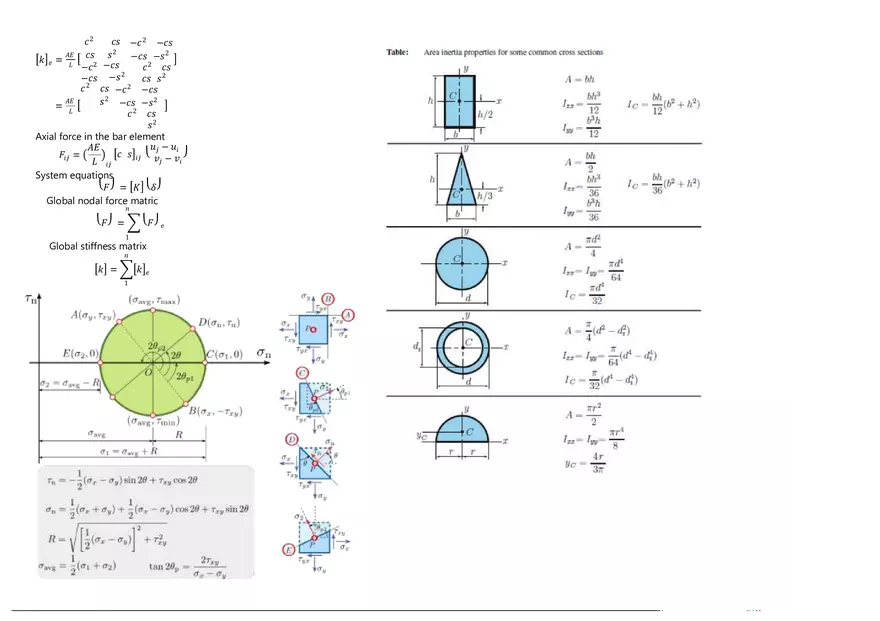 c² cs −c² −cs
[k]ₑ = AE/L [ cs s² −cs −s² ]
−c² −cs c² cs
−cs −s² cs s²
c² cs −c² −cs
= AE/L [ s² −cs −s² ]
c² cs
s²
Axial force in the bar element
F_ij = (AE/L)_ij [c s]_ij {u_j − u_i v_j − v_i}
System equations
{F} = [K]{δ}
Global nodal force matric
{F} = ∑₁ⁿ {F}ₑ
Global stiffness matrix
[k] = ∑₁ⁿ [k]ₑ
τn
(σavg, τmax)
A(σy, τxy)
D(σn, τn)
2θp2
2θ
E(σ2, 0)
O
C(σ1, 0)
σn
2θp1
σ2 = σavg − R
B(σx, −τxy)
(σavg, τmin)
σavg
R
σ1 = σavg + R
τn = −1/2(σx − σy) sin 2θ + τxy cos 2θ
σn = 1/2(σx + σy) + 1/2(σx − σy) cos 2θ + τxy sin 2θ
R = √([1/2(σx − σy)]² + τ²xy)
σavg = 1/2(σ1 + σ2)
tan 2θp = 2τxy/(σx − σy)
σy
B
τyx
A
σx
τxy
P
σx
τxy
τyx
σy
C
σx
σ1
θp1
P
τxy
θp1
τyx
σy
D
σx
τn
σn
θ
θ
τxy
P
τyx
σy
σ2
θp2
τxy
P
σx
E
τyx
σy
Table: Area inertia properties for some common cross sections
y
C
x
h
h/2
b
A = bh
Ixx = bh³/12
Iyy = b³h/12
IC = bh/12(b² + h²)
y
h
C
x
h/3
b
A = bh/2
Ixx = bh³/36
Iyy = b³h/36
IC = bh/36(b² + h²)
y
C
x
d
A = πd²/4
Ixx = Iyy = πd⁴/64
IC = πd⁴/32
y
di
C
x
d
A = π/4(d² − di²)
Ixx = Iyy = π/64(d⁴ − di⁴)
IC = π/32(d⁴ − di⁴)
y
yC
C
x
r r
A = πr²/2
Ixx = Iyy = πr⁴/8
yC = 4r/3π